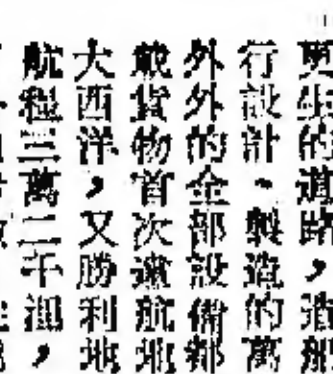 更生的道路，造船
行設計、製造的萬
外外的全部設備都
戴貨物首次遠航地
大西洋，又勝利地
航程三萬二千浬，